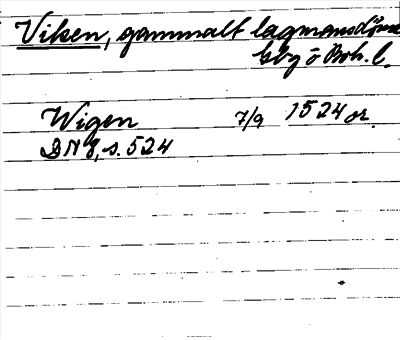 Viken, gammalt lagmansdöme
i Boh. l.
Wigen 7/9 1524 or.
DN 8, s. 524